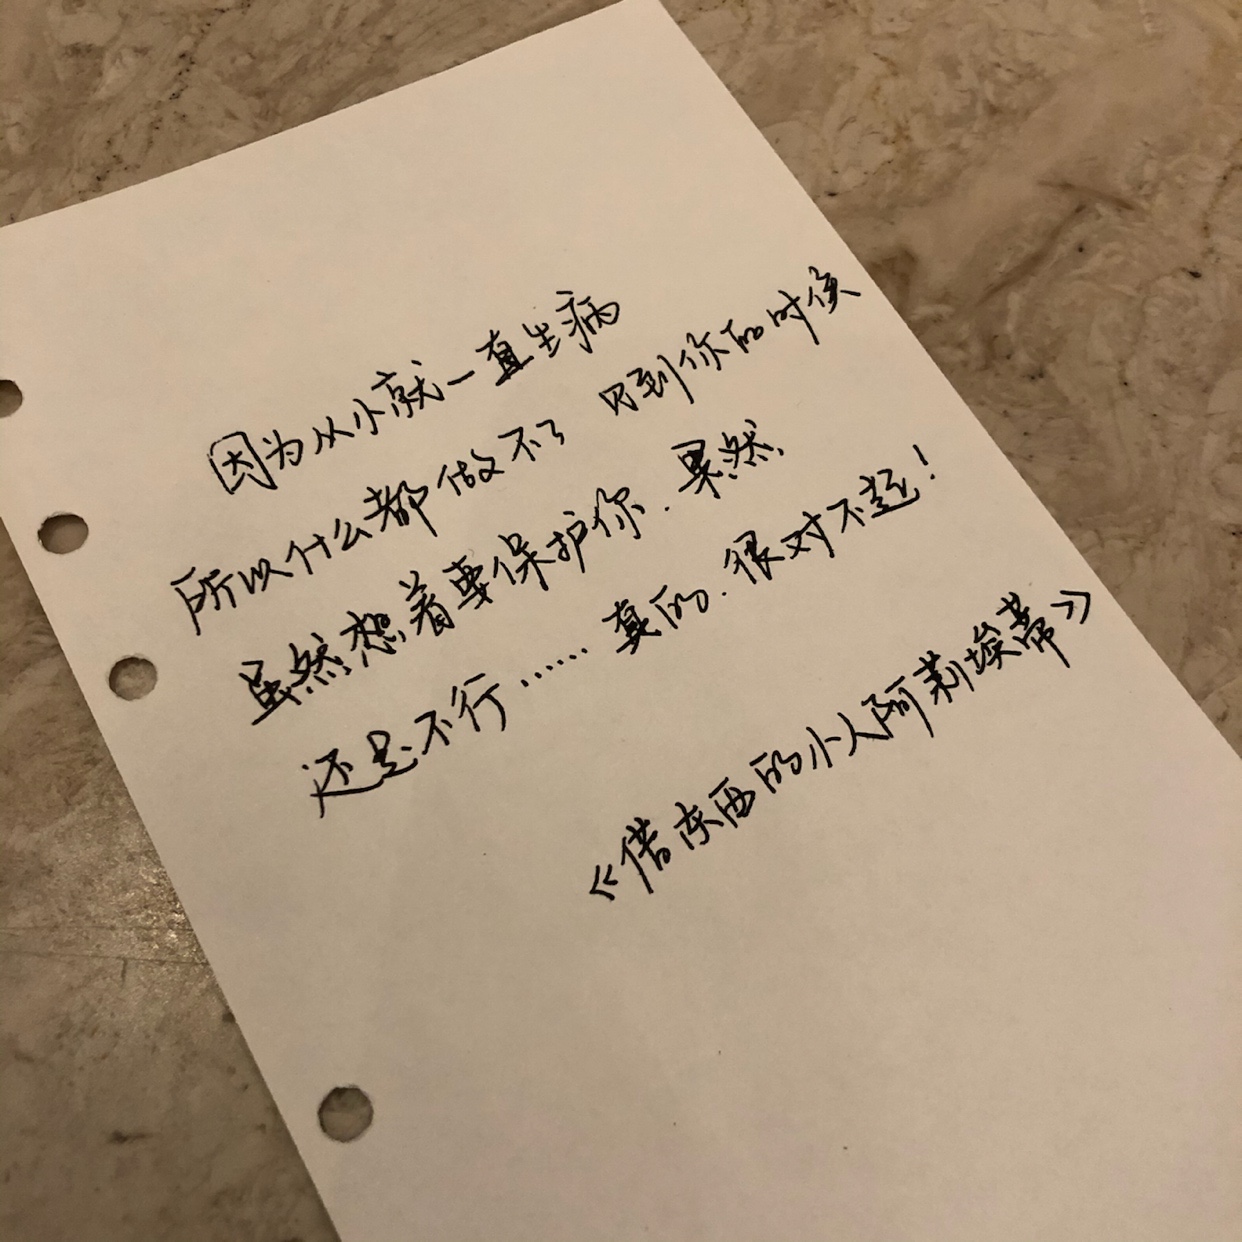 因为从小就一直生病
所以什么都做不了 见到你的时候
虽然想着要保护你.果然
还是不行……真的.很对不起!
《借东西的小人阿莉埃蒂》